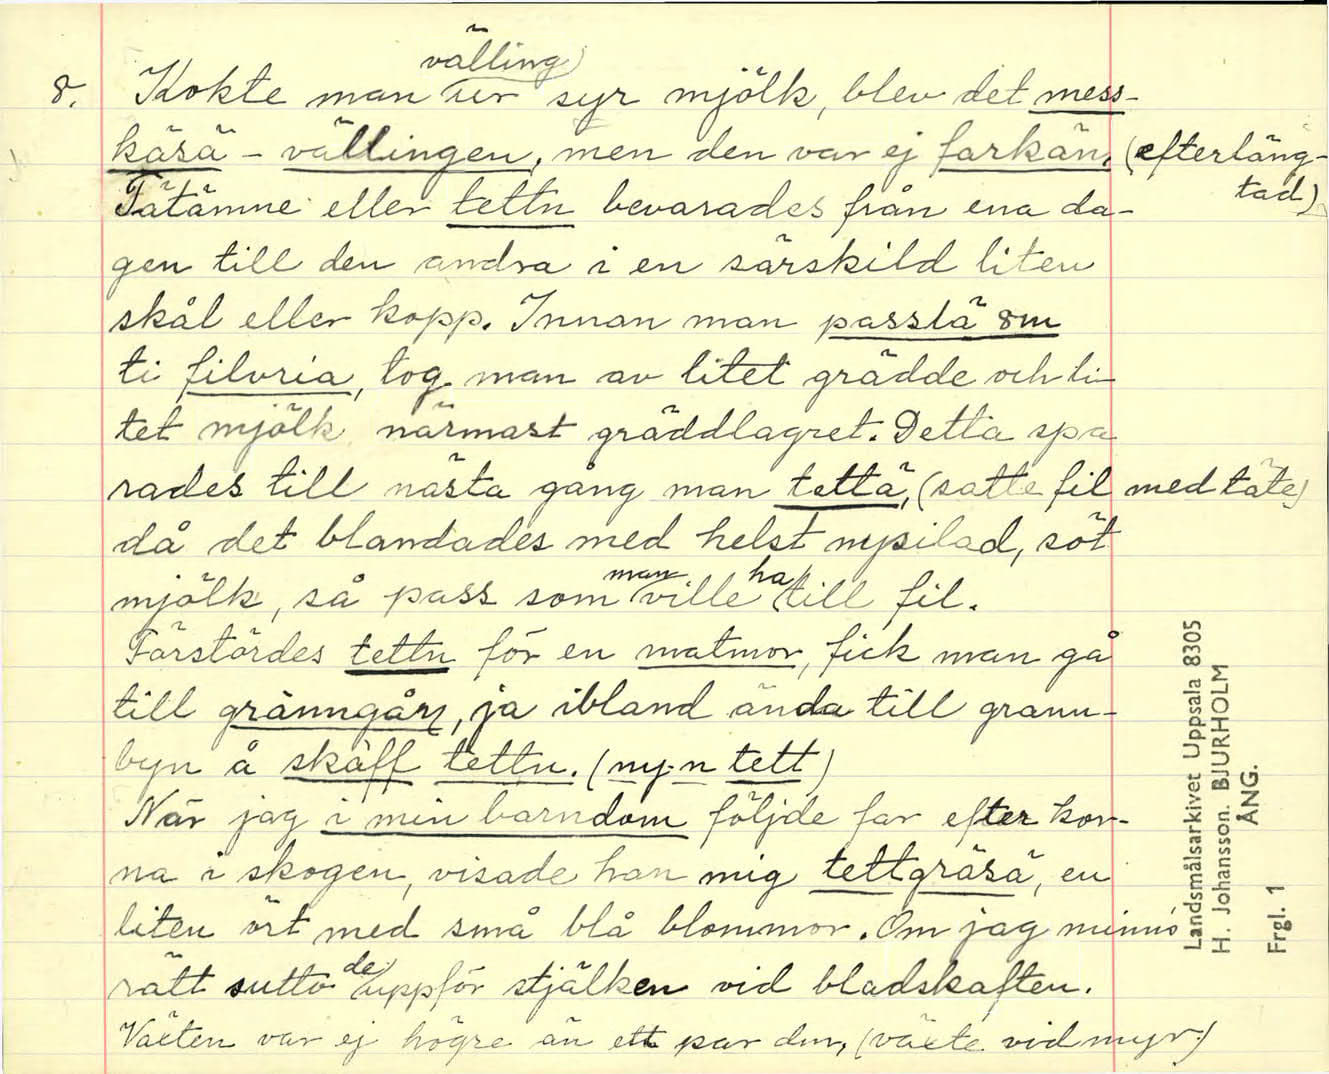 8. Kokte man välling ur syr mjölk, blev det mess-
käsä-vällingen, men den var ej farkän, (efterläng-
tad)
Tätämne eller tettn bevarades från ena da-
gen till den andra i en särskild liten
skål eller kopp. Innan man passlä om
ti filvria, tog man av litet grädde och li-
tet mjölk närmast gräddlagret. Detta spa
rades till nästa gång man tettä, (satte fil med täte)
då det blandades med helst nysilad, söt
mjölk, så pass som man ville ha till fil.
Förstördes tettn för en matmor, fick man gå
till grànngåṛn, ja ibland ända till grann-
byn å skàff tettn. (ny-n tett)
När jag i min barndom följde far efter kor-
na i skogen, visade han mig tettgräsä, en
liten ört med små blå blommor. Om jag minns
rätt sutto de uppför stjälken vid bladskaften.
Växten var ej högre än ett par dm, (växte vid myr.)
Landsmålsarkivet Uppsala 8305
H. Johansson. BJURHOLM
ÅNG.
Frgl. 1